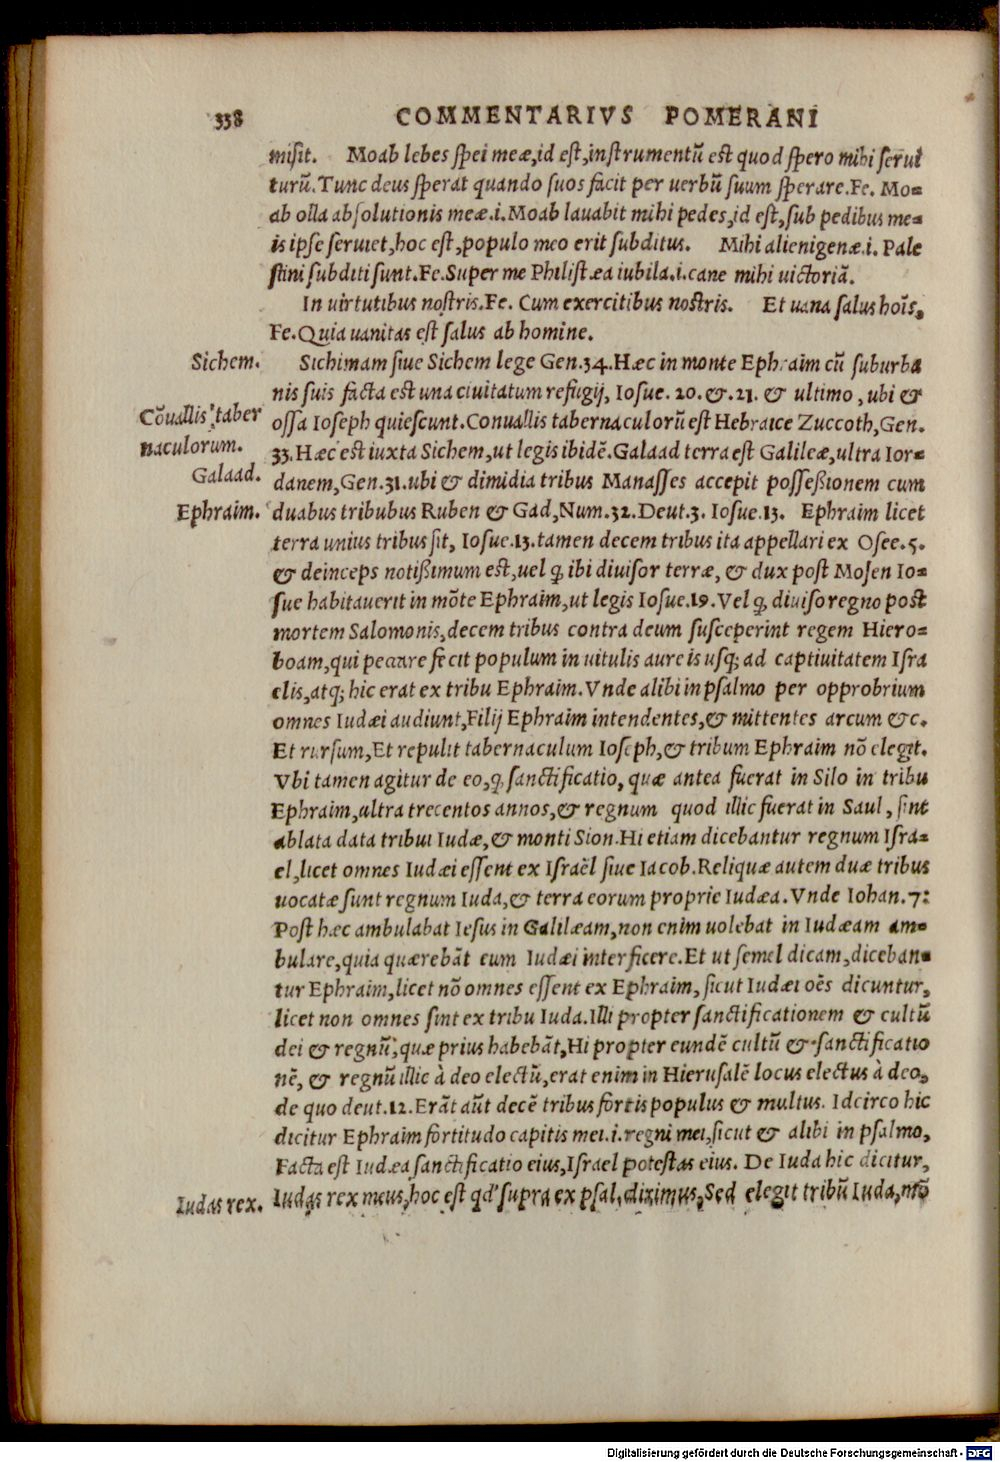 338 COMMENTARIVS POMERANI
misit. Moab lebes spei meæ,id est,instrumentũ est quod spero mihi serui
turũ.Tunc deus sperat quando suos facit per uerbũ suum sperare.Fe. Mo=
ab olla absolutionis meæ.i.Moab lauabit mihi pedes,id est,sub pedibus me=
is ipse seruiet,hoc est,populo meo erit subditus. Mihi alienigenæ.i. Pale
stini subditi sunt.Fe.Super me Philistæa iubila.i.cane mihi uictoriã.
In uirtutibus nostris.Fe. Cum exercitibus nostris. Et uana salus hoĩs,
Fe.Quia uanitas est salus ab homine.
Sichem. Sichimam siue Sichem lege Gen.34.Hæc in monte Ephraim cũ suburba
nis suis facta est una ciuitatum refugij, Iosue. 20. & .21. & ultimo , ubi &
Cõuallis taber ossa Ioseph quiescunt.Conuallis tabernaculorũ est Hebraice Zuccoth,Gen.
naculorum. 33.Hæc est iuxta Sichem,ut legis ibidẽ.Galaad terra est Galileæ,ultra Ior=
Galaad. danem,Gen.31.ubi & dimidia tribus Manasses accepit possessionem cum
Ephraim. duabus tribubus Ruben & Gad,Num.32.Deut.3. Iosue.13. Ephraim licet
terra unius tribus sit, Iosue.13.tamen decem tribus ita appellari ex Osee.5.
& deinceps notissimum est,uel q̃ ibi diuisor terræ, & dux post Mosen Io=
sue habitauerit in mõte Ephraim,ut legis Iosue.19.Vel q̃ diuiso regno post
mortem Salomonis,decem tribus contra deum susceperint regem Hiero=
boam,qui peccare fecit populum in uitulis aureis usq; ad captiuitatem Isra
elis,atq; hic erat ex tribu Ephraim.Vnde alibi in psalmo per opprobrium
omnes Iudæi audiunt,Filij Ephraim intendentes,& mittentes arcum &c.
Et rursum,Et repulit tabernaculum Ioseph,& tribum Ephraim nõ elegit.
Vbi tamen agitur de eo,q̃ sanctificatio, quæ antea fuerat in Silo in tribu
Ephraim,ultra trecentos annos,& regnum quod illic fuerat in Saul, sint
ablata data tribui Iudæ,& monti Sion.Hi etiam dicebantur regnum Isra=
el,licet omnes Iudæi essent ex Israël siue Iacob.Reliquæ autem duæ tribus
uocatæ sunt regnum Iuda,& terra eorum proprie Iudæa.Vnde Iohan.7:
Post hæc ambulabat Iesus in Galilæam,non enim uolebat in Iudæam am=
bulare,quia quærebãt eum Iudæi interficere.Et ut semel dicam,diceban=
tur Ephraim,licet nõ omnes essent ex Ephraim, sicut Iudæi oẽs dicuntur,
licet non omnes sint ex tribu Iuda.Illi propter sanctificationem & cultũ
dei & regnũ,quæ prius habebãt,Hi propter eundẽ cultũ & sanctificatio
nẽ, & regnũ illic à deo electũ,erat enim in Hierusalẽ locus electus à deo,
de quo deut.12.Erãt aũt decẽ tribus fortis populus & multus. Idcirco hic
dicitur Ephraim fortitudo capitis mei.i.regni mei,sicut & alibi in psalmo,
Facta est Iudæa sanctificatio eius,Israel potestas eius. De Iuda hic dicitur,
Iudas rex. Iudas rex meus,hoc est qd' supra ex psal.diximus,Sed elegit tribũ Iuda,mõ
Digitalisierung gefördert durch die Deutsche Forschungsgemeinschaft - DFG